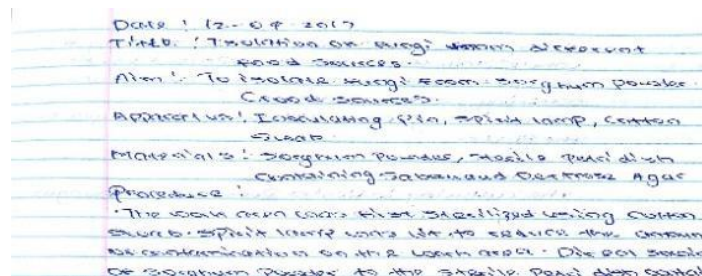 Date : 12-09-2017
Title : Isolation of fungi from different
food sources.
Aim : To isolate fungi from sorghum powder
(food sources.
Apparatus : Inoculating pin, spirit lamp, cotton
swab
Materials : Sorghum powder, sterile petri dish
containing Sabouraud Dextrose Agar
procedure :
The work area was first sterilized using cotton
swab. Spirit lamp was lit to reduce the
of contamination on the work area.
of sorghum powder to the sterile petri dish